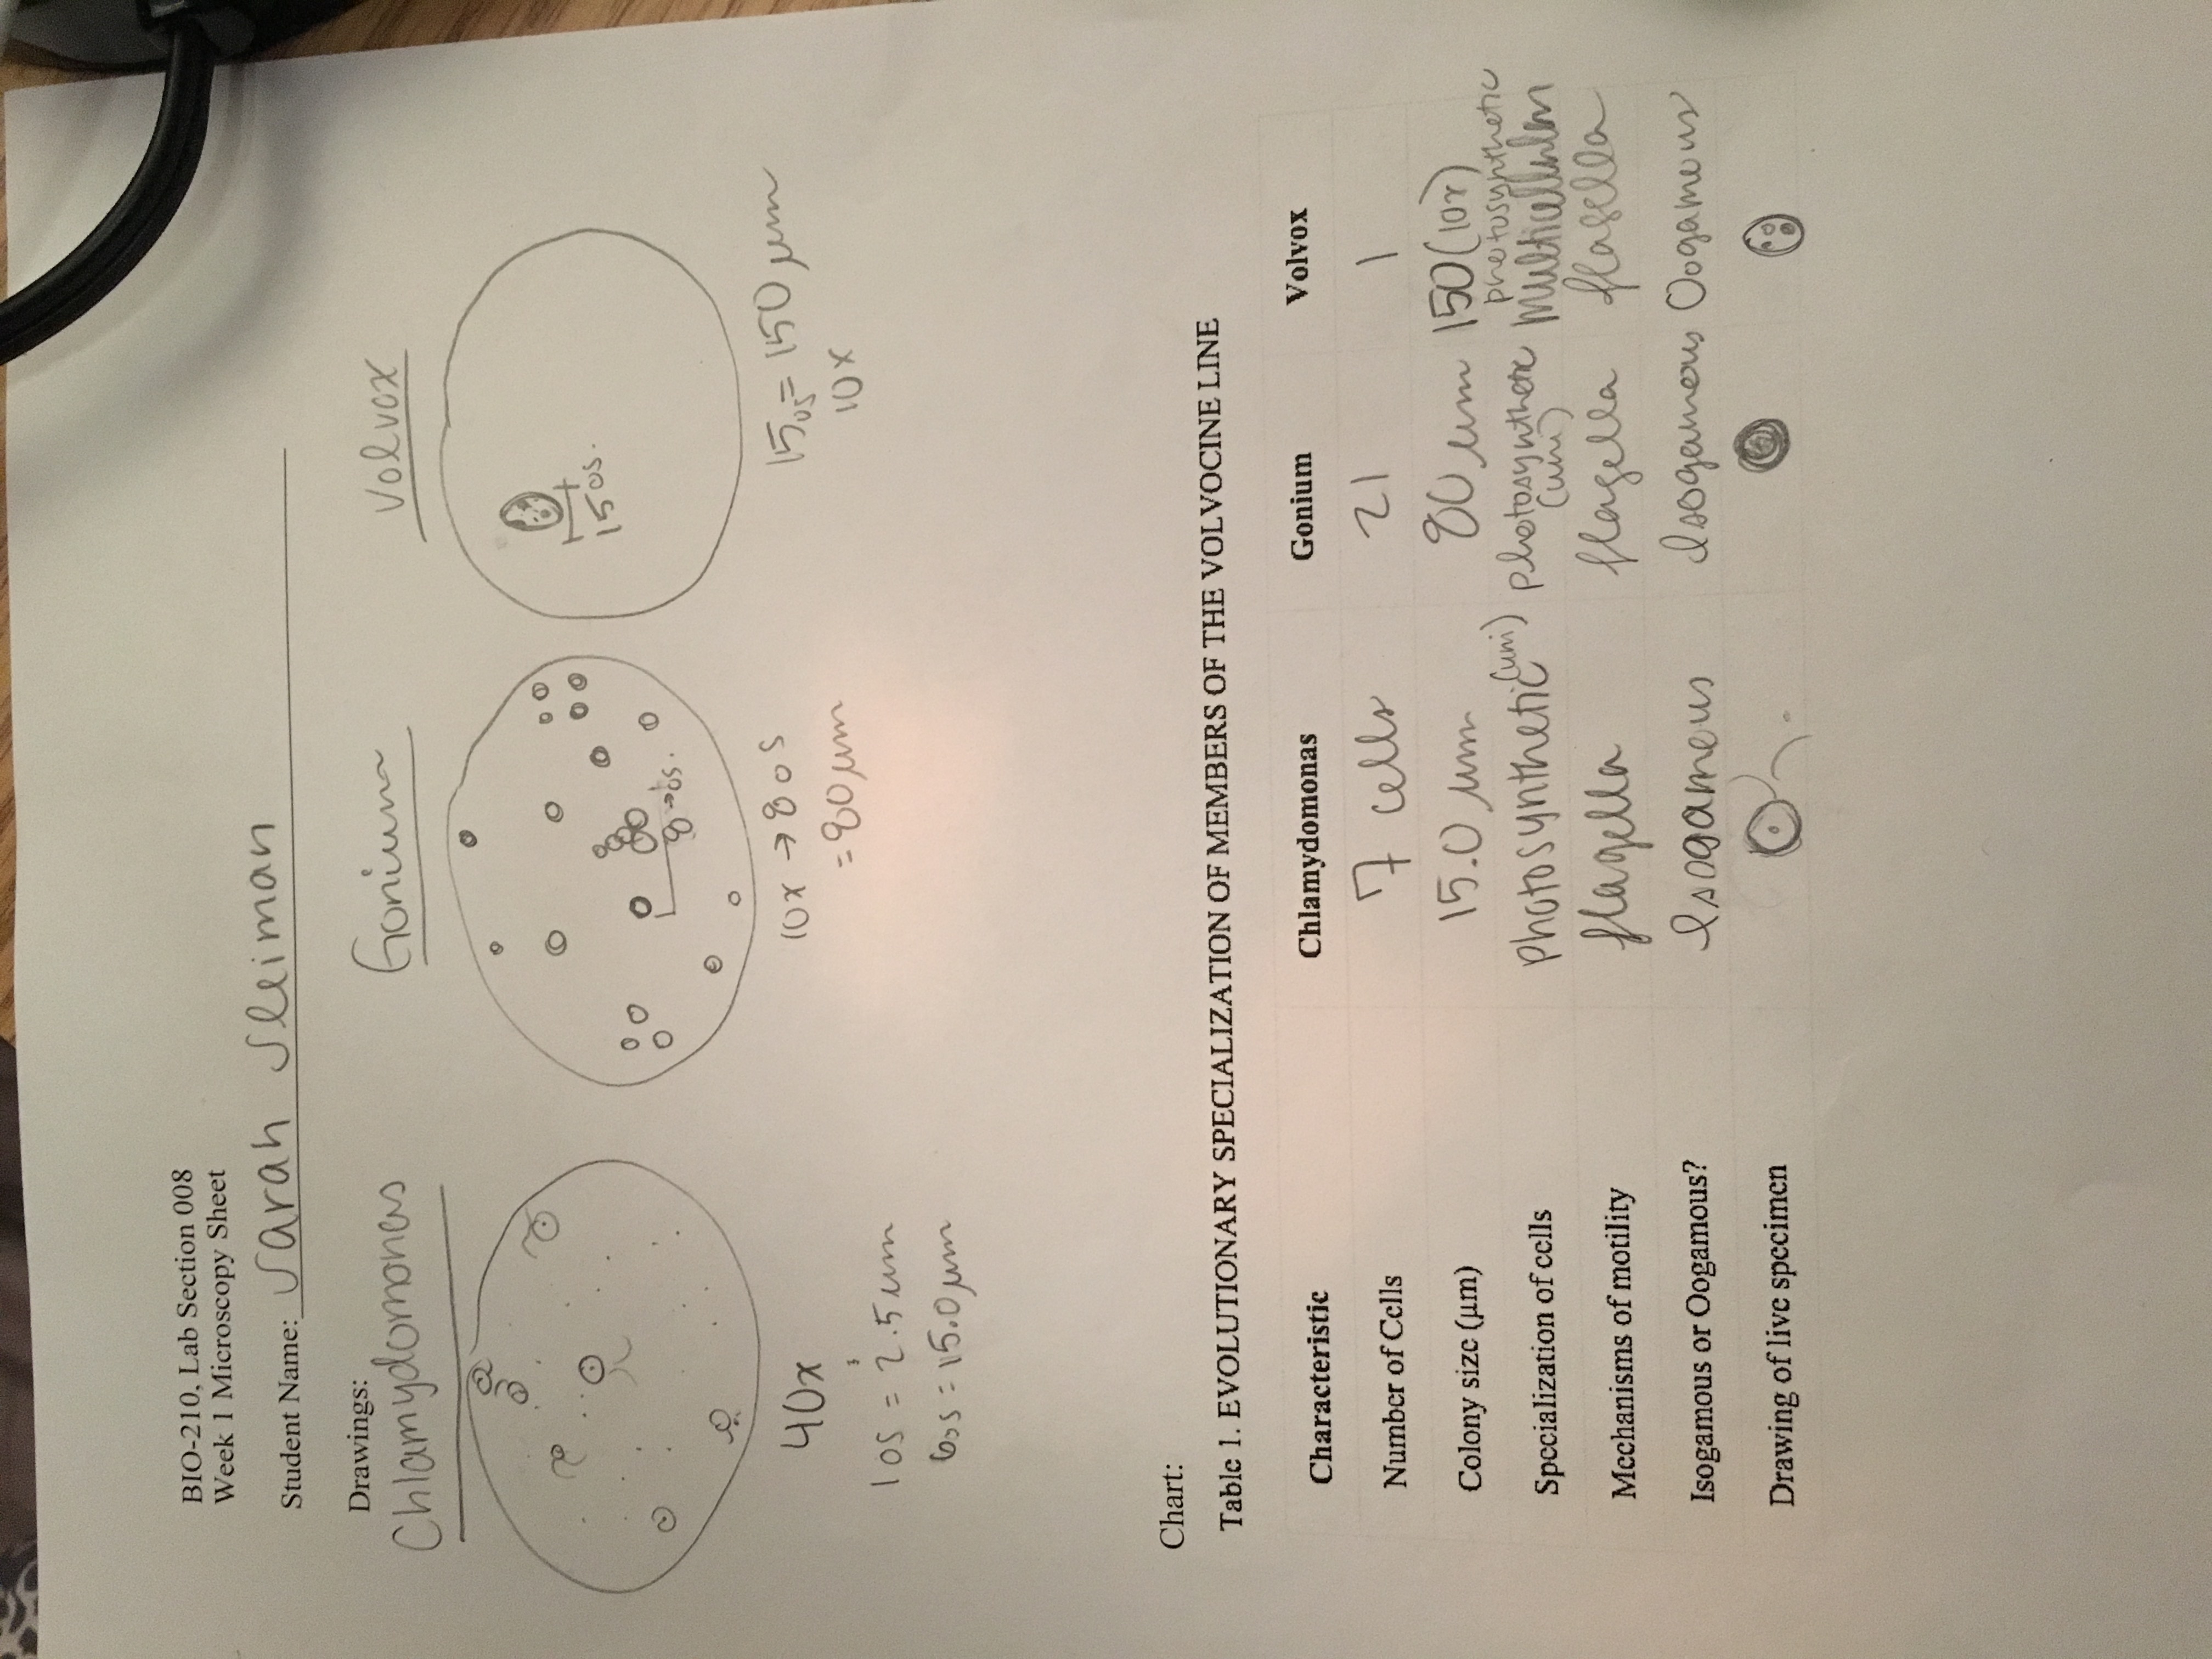 BIO-210, Lab Section 008
Week 1 Microscopy Sheet
Student Name: Sarah Sleiman
Drawings:
Chlamydomones
Gonium
Volvox
8 → os.
15 os.
40x
1 os = 2.5 µm
6 os = 15.0 µm
10x → 8 os
= 80 µm
15 os = 150 µm
10x
Chart:
Table 1. EVOLUTIONARY SPECIALIZATION OF MEMBERS OF THE VOLVOCINE LINE
Characteristic Chlamydomonas Gonium Volvox
Number of Cells 7 cells 21 1
Colony size (µm) 15.0 µm 80 µm 150 (10x)
Specialization of cells Photosynthetic (uni) photosynthetic (uni) photosynthetic Multicellular
Mechanisms of motility flagella flagella flagella
Isogamous or Oogamous? Isogameous Isogameous Oogameous
Drawing of live specimen